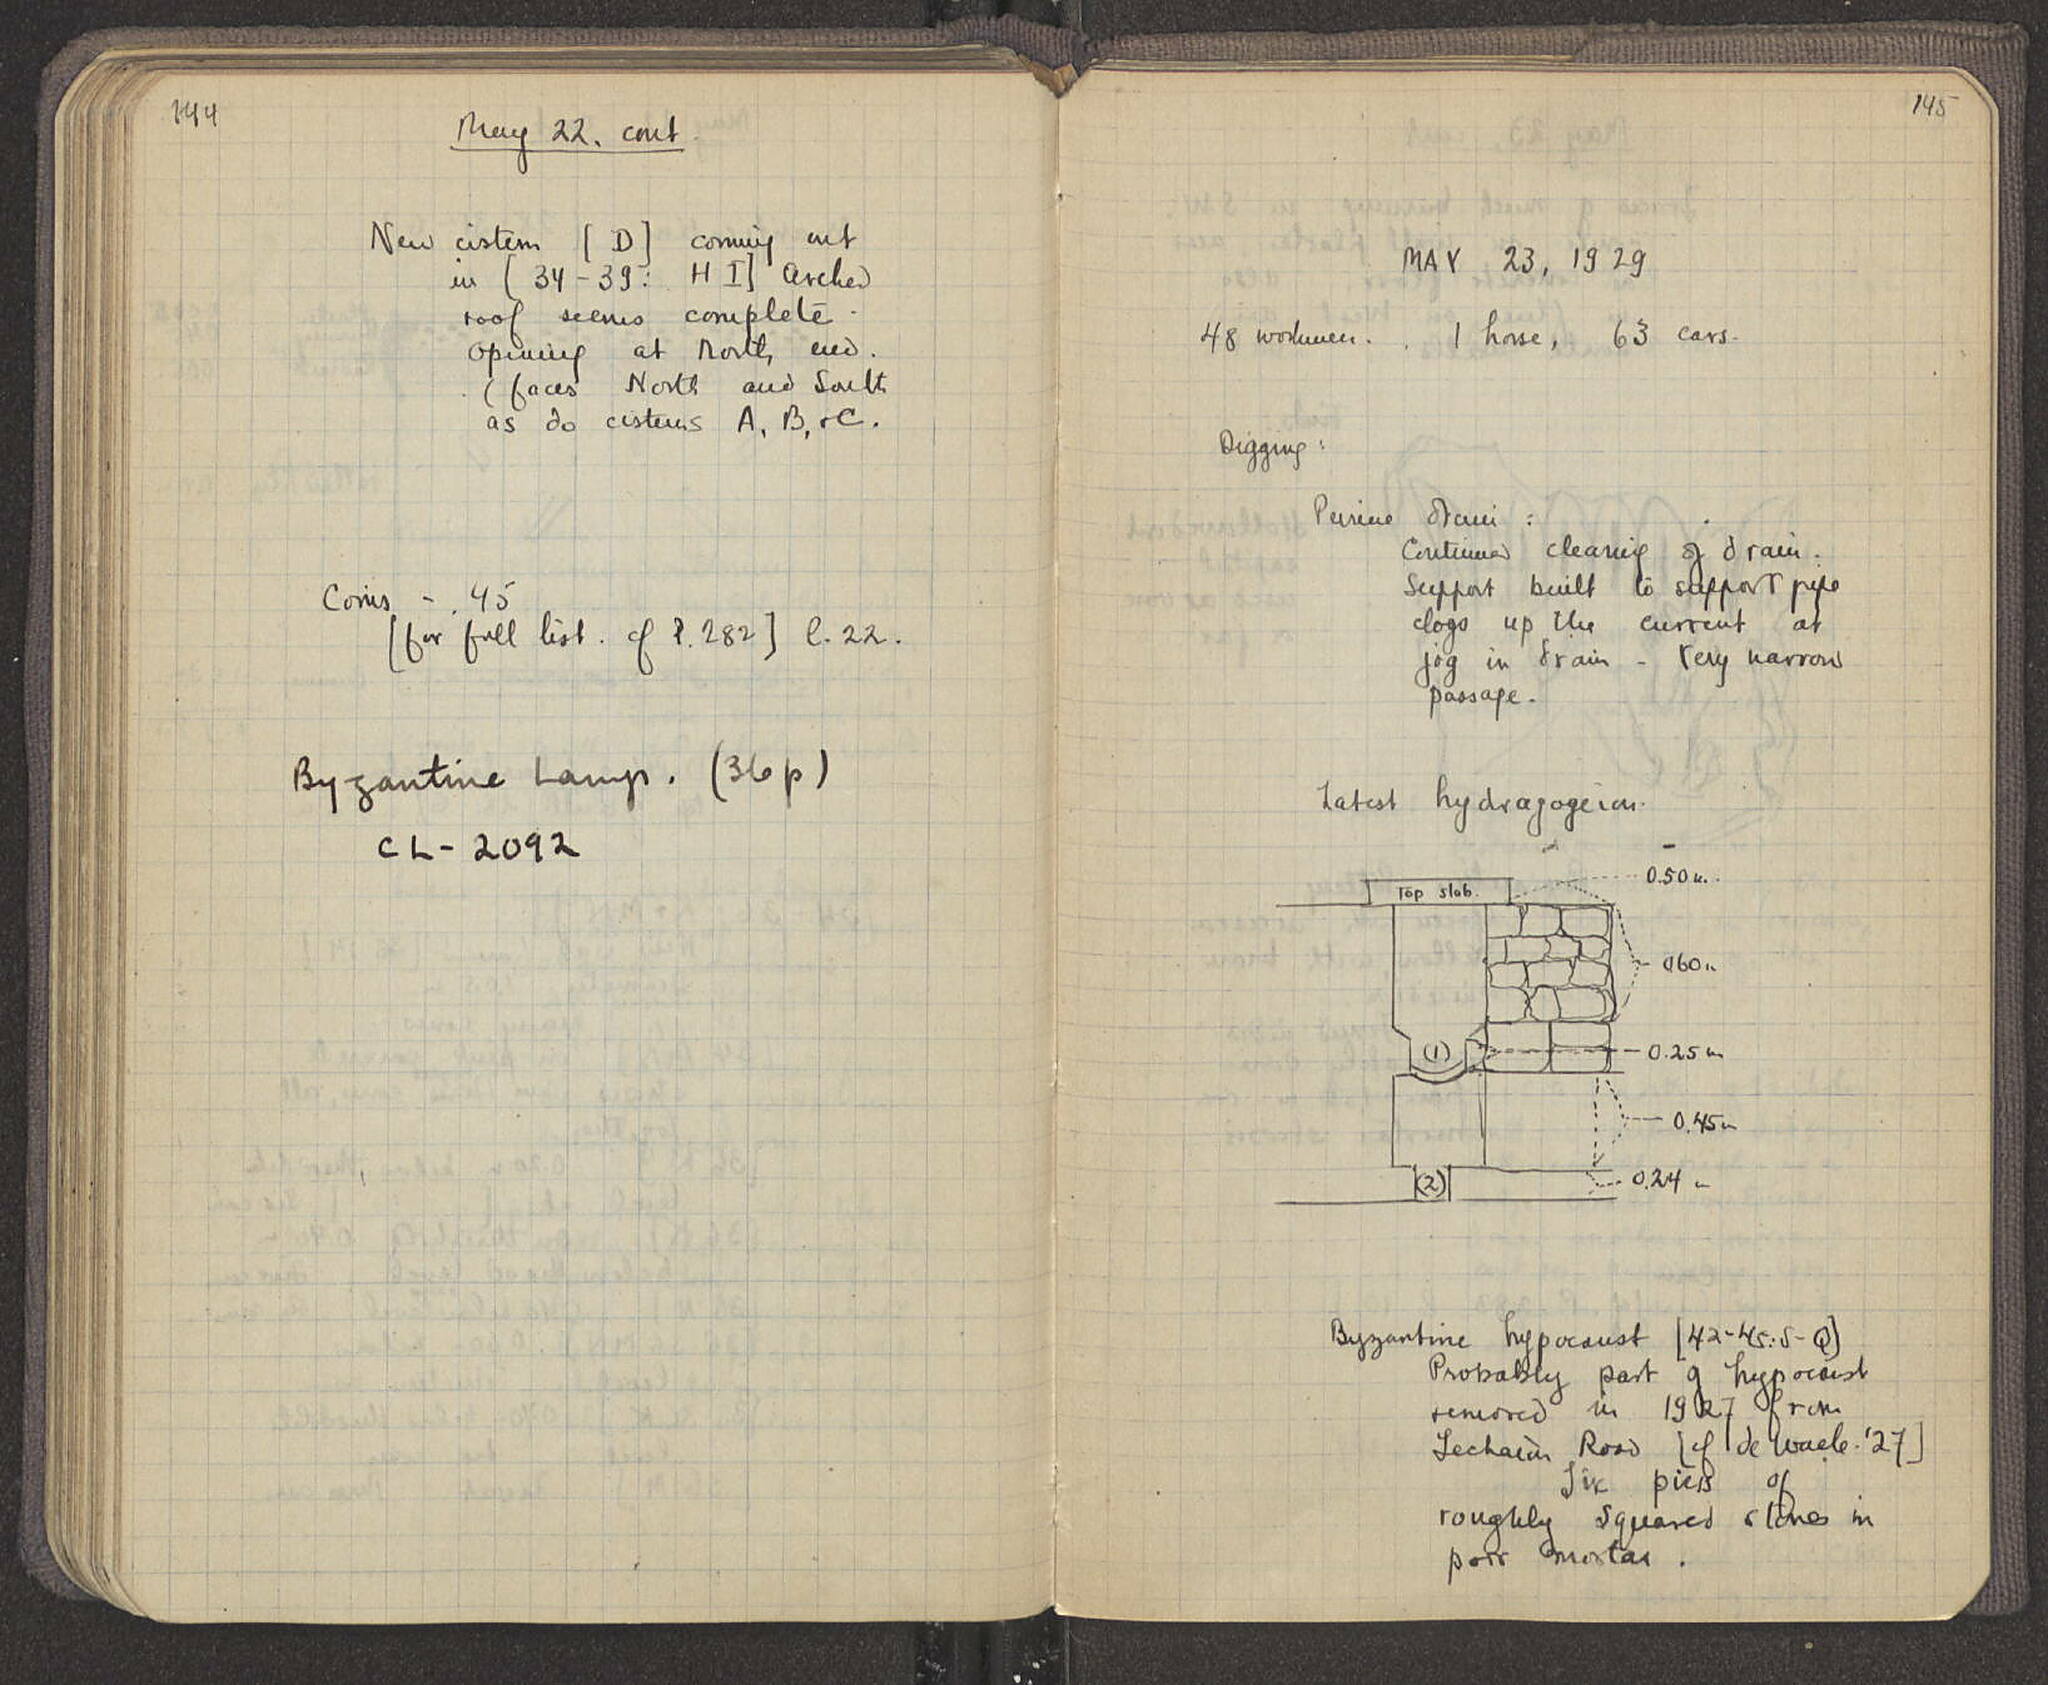 144
May 22. cont.
New cistern [D] coming out
in [34-39: H I] Arched
roof seems complete.
Opening at North end.
(faces North and South
as do cisterns A, B, + C.
Coins - 45
[for full list. cf P. 282] l. 22.
Byzantine Lamp. (36p)
CL-2092
145
MAY 23, 1929
48 workmen. 1 horse, 63 cars.
Digging:
Peirene drain:
Continued cleaning of drain.
Support built to support pipe
clogs up the current at
jog in drain - Very narrow
passage.
Latest hydragogeion.
Top slab.
0.50 m.
0.60 m
(1)
0.25 m
0.45 m
(2)
0.24 m
Byzantine hypocaust [42-45:S-Q]
Probably part of hypocaust
removed in 1927 from
Lechaion Road [cf de Waele '27]
Six piers of
roughly squared stones in
poor mortar.